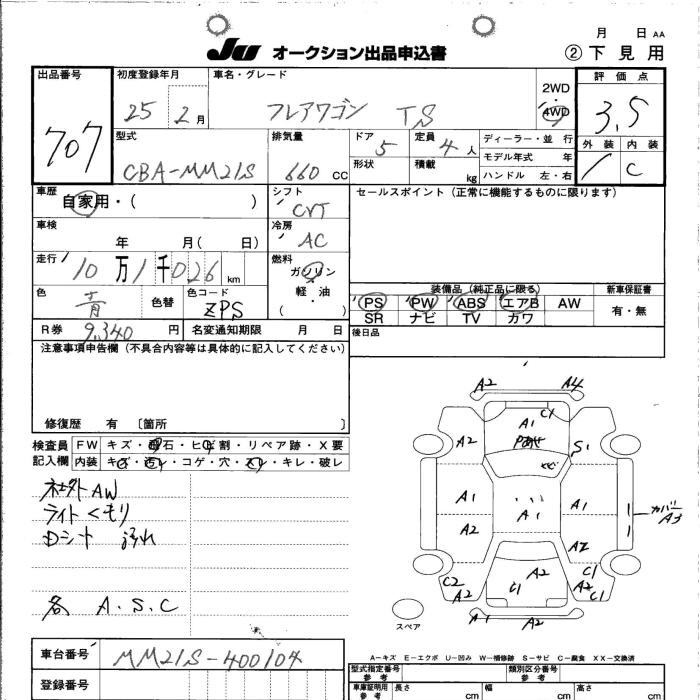 月 日 AA
JU オークション出品申込書
② 下見用
出品番号
707
初度登録年月
25 2月
車名・グレード
フレアワゴン TS
2WD
4WD
評価点
3.5
外装 内装
C
型式
CBA-MM21S
排気量
660 CC
ドア
5
形状
定員
4人
積載
kg
ディーラー・並行
モデル年式 年
ハンドル 左・右
車歴
自家用・( )
シフト
CVT
セールスポイント(正常に機能するものに限ります)
車検
年 月( 日)
冷房
AC
走行
10万1千026 km
燃料
ガソリン
軽・油
( )
色
青
色替
色コード
ZPS
装備品(純正品に限る)
新車保証書
PS PW ABS エアB AW
SR ナビ TV カワ
有・無
R券 9,340 円
名変通知期限 月 日
後日品
注意事項申告欄(不具合内容等は具体的に記入してください)
修復歴 有 〔箇所 〕
検査員記入欄
FW キズ・飛石・ヒビ割・リペア跡・X要
内装 キズ・汚レ・コゲ・穴・スレ・キレ・破レ
社外AW
ライトくもり
Dシート 汚れ
各 A.S.C
A2 A4
C1
A1
A2
S1
A1
A1
A1
カバリ
A3
A2
A2
C2
A2
A2
C1
C1
A2
C1
A1 A2
スペア
A-キズ E-エクボ U-凹み W-補修跡 S-サビ C-腐食 XX-交換済
車台番号
MM21S-400104
登録番号
型式指定番号
参考
類別区分番号
参考
車庫証明用
参考
長さ cm
幅 cm
高さ cm